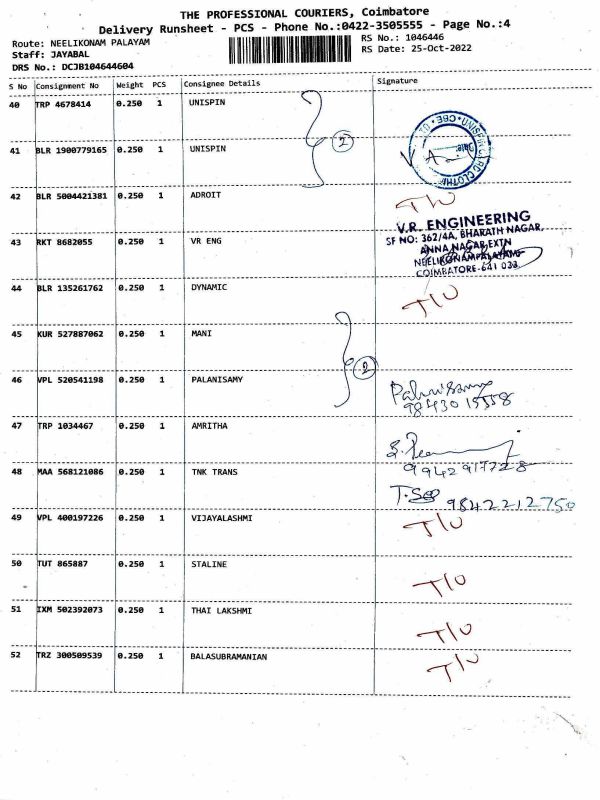 THE PROFESSIONAL COURIERS, Coimbatore
Delivery Runsheet - PCS - Phone No.:0422-3505555 - Page No.:4
Route: NEELIKONAM PALAYAM RS No.: 1046446
Staff: JAYABAL RS Date: 25-Oct-2022
DRS No.: DCJB104644604
S No Consignment No Weight PCS Consignee Details Signature
40 TRP 4678414 0.250 1 UNISPIN
41 BLR 1900779165 0.250 1 UNISPIN 2
42 BLR 5004421381 0.250 1 ADROIT T/U
V.R. ENGINEERING
SF NO: 362/4A, BHARATH NAGAR,
43 RKT 8682055 0.250 1 VR ENG ANNA NAGAR EXTN
NEELIKONAMPALAYAM
COIMBATORE-641 033
44 BLR 135261762 0.250 1 DYNAMIC T/U
45 KUR 527887062 0.250 1 MANI
46 VPL 520541198 0.250 1 PALANISAMY 2 Palanisamy
98430 15558
47 TRP 1034467 0.250 1 AMRITHA
9942917728
48 MAA 568121086 0.250 1 TNK TRANS
9842212750
49 VPL 400197226 0.250 1 VIJAYALASHMI T/U
50 TUT 865887 0.250 1 STALINE T/U
51 IXM 502392073 0.250 1 THAI LAKSHMI T/U
52 TRZ 300509539 0.250 1 BALASUBRAMANIAN T/U